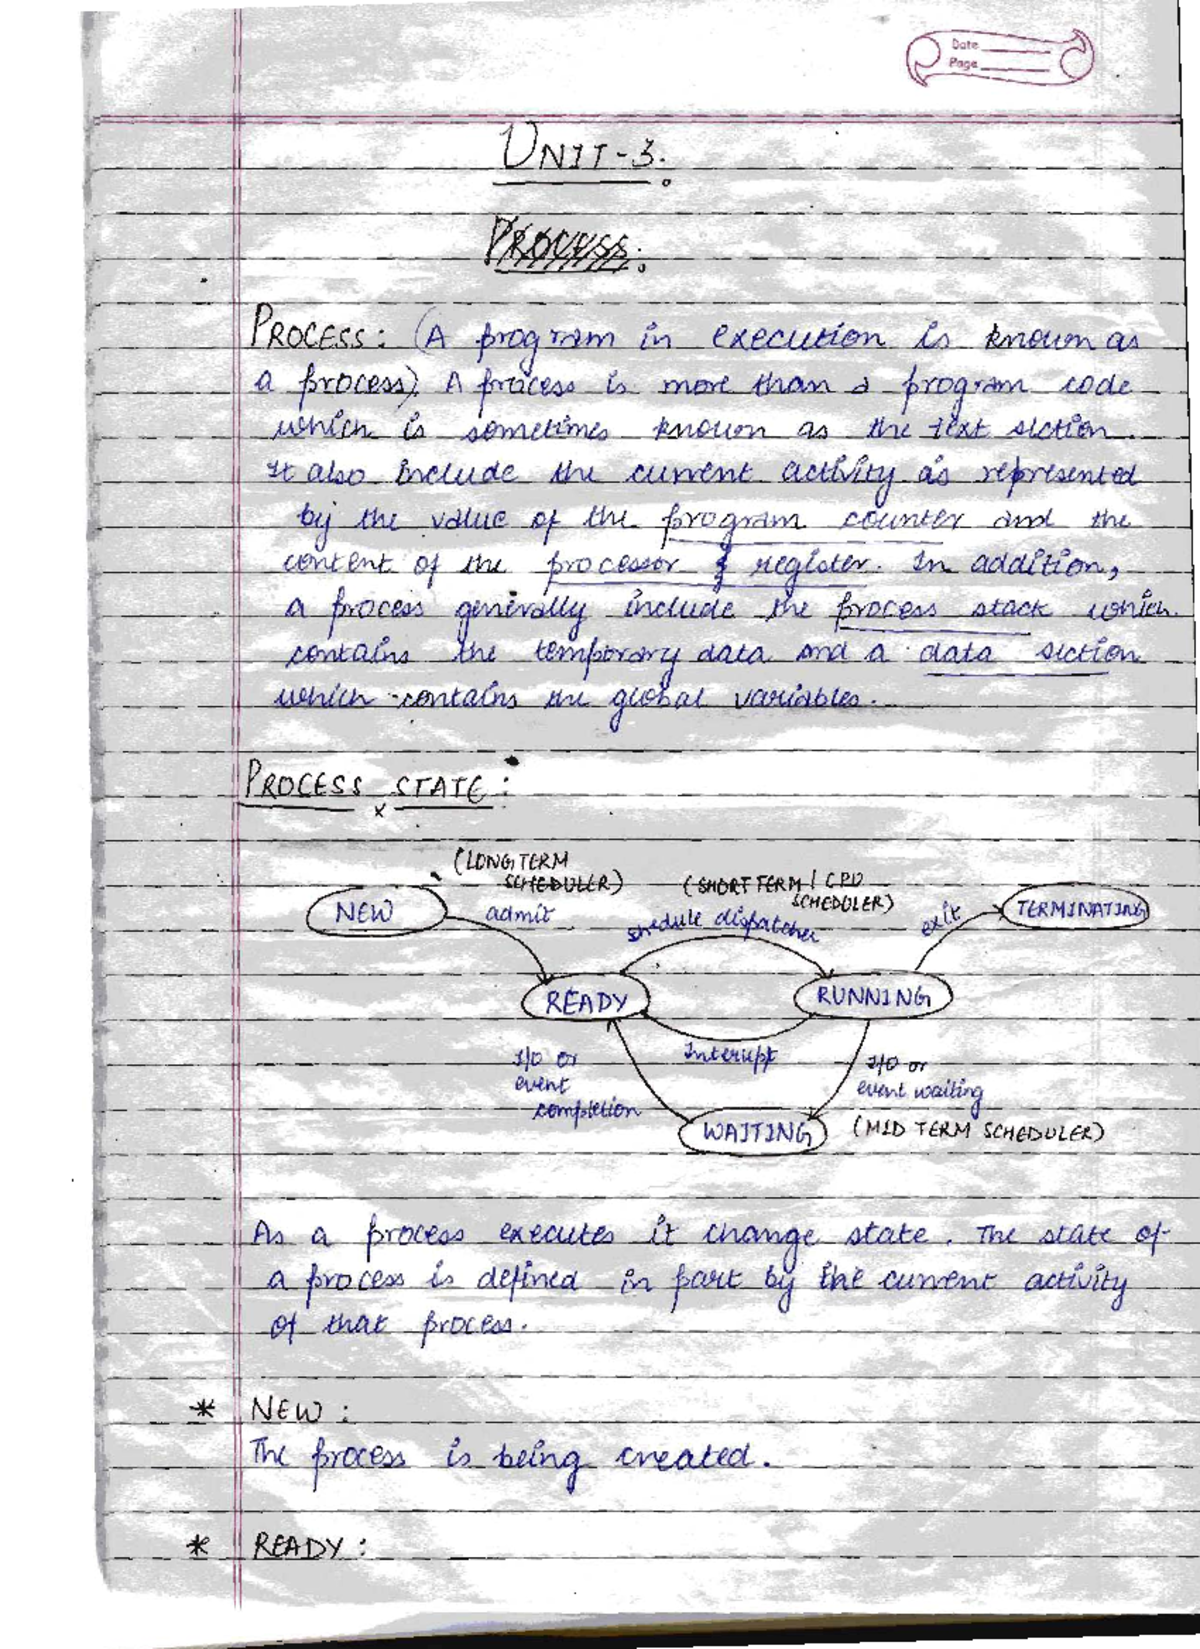 Date
Page
UNIT-3.
PROCESS:
PROCESS: (A program in execution is known as
a process). A process is more than a program code
which is sometimes known as the text section.
It also include the current activity as represented
by the value of the program counter and the
content of the processor & register. In addition,
a process generally include the process stack which
contains the temporary data and a data section
which contains the global variables.
PROCESS STATE:
(LONG TERM
SCHEDULER)
(SHORT TERM / CPU
SCHEDULER)
NEW
admit
schedule dispatcher
exit
TERMINATING
READY
RUNNING
Interupt
I/O or
event
completion
I/O or
event waiting
WAITING
(MID TERM SCHEDULER)
As a process executes it change state. The state of
a process is defined in part by the current activity
of that process.
* NEW:
The process is being created.
* READY: